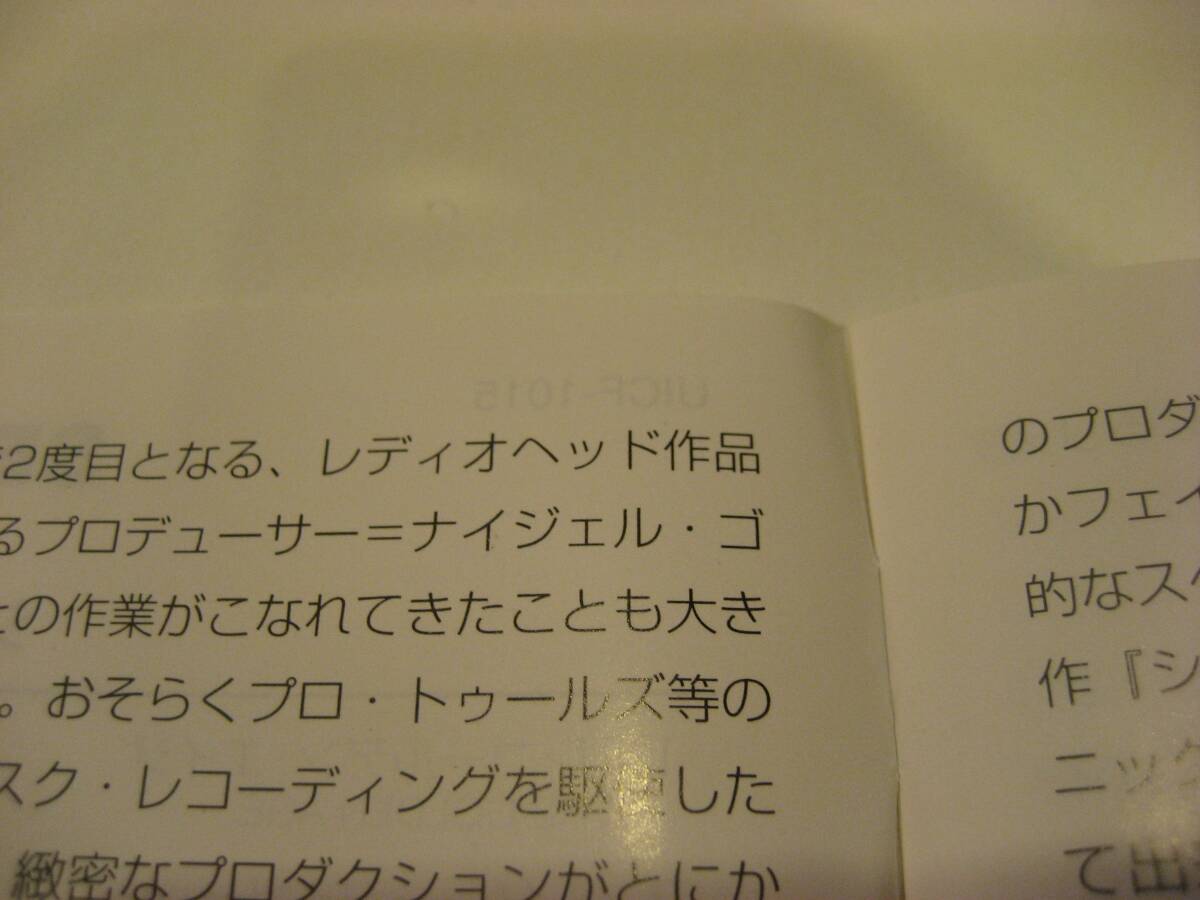 UICF-1015
2度目となる、レディオヘッド作品
るプロデューサー＝ナイジェル・ゴ
との作業がこなれてきたことも大き
。おそらくプロ・トゥールズ等の
スク・レコーディングを駆使した
緻密なプロダクションがとにか
のプロダ
かフェイ
的なスケ
作『シ
ニック
て出